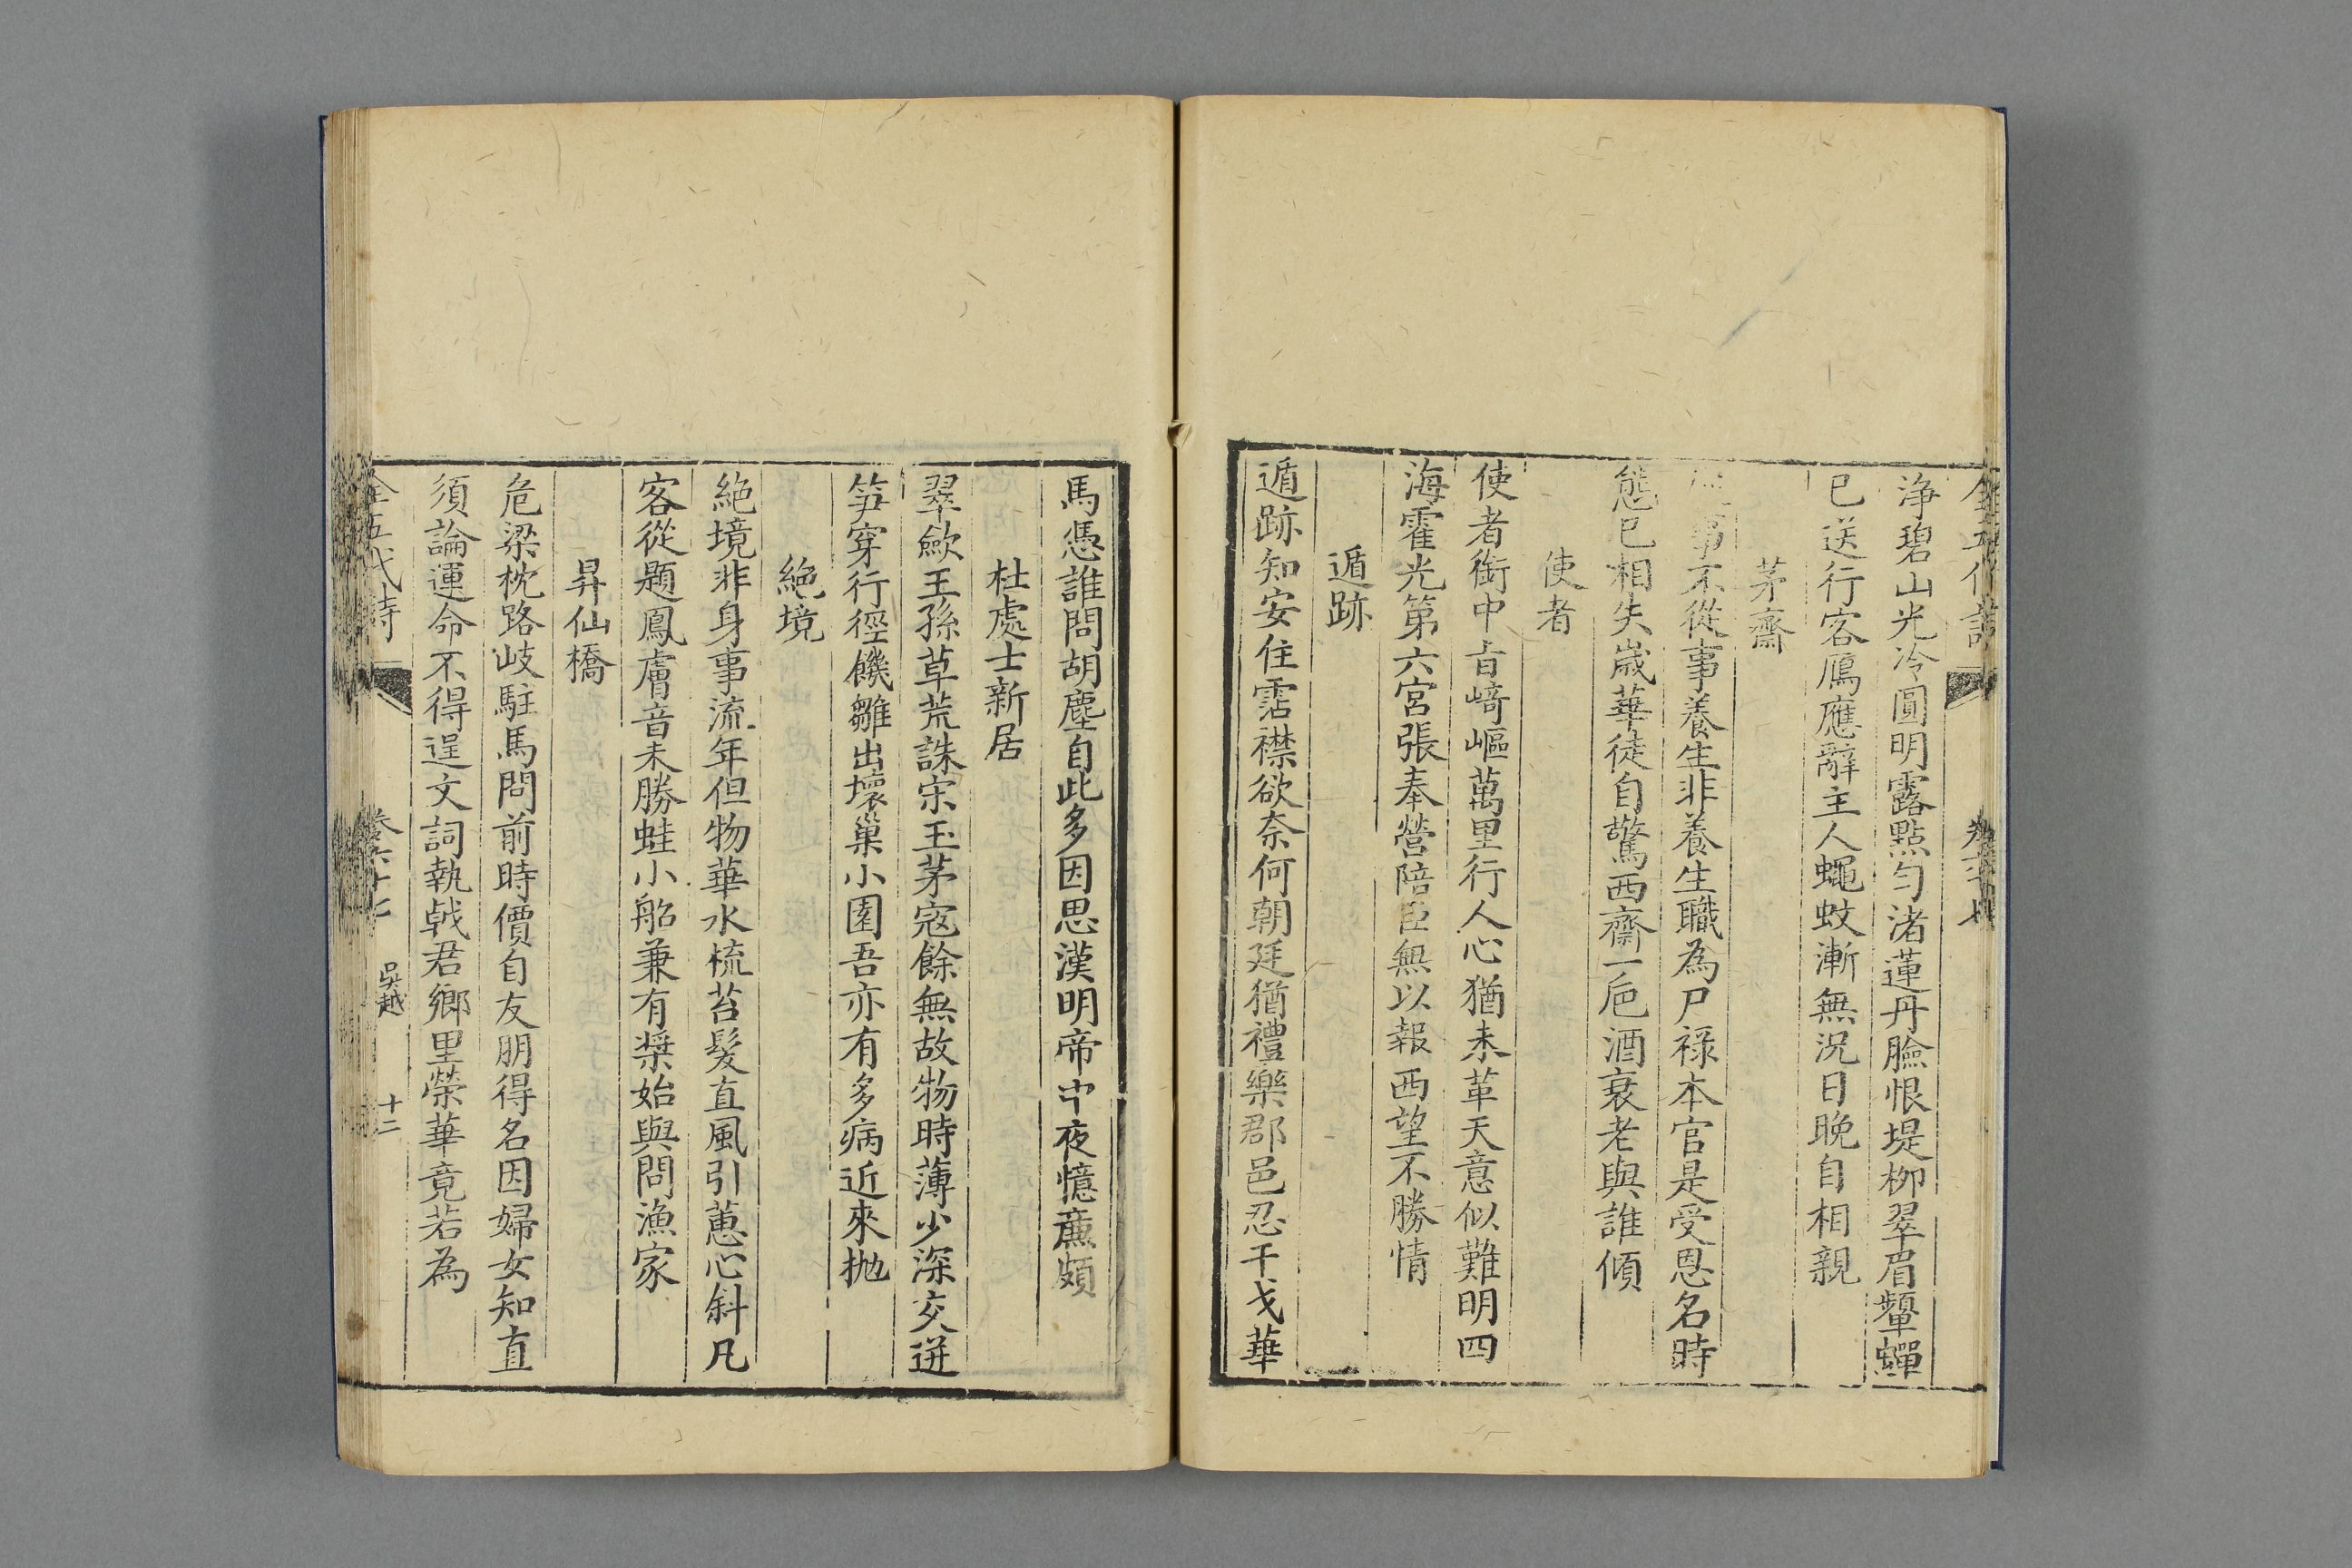 淨碧山光冷圓明露點勻渚蓮丹臉恨堤柳翠眉顰蟬
已送行客鴈應辭主人蠅蚊漸無況日晚自相親
茅齋
事不從事養生非養生職為尸祿本官是受恩名時
態已相失歲華徒自驚西齋一卮酒衰老與誰傾
使者
使者銜中旨崎嶇萬里行人心猶未革天意似難明四
海霍光第六宮張奉營陪臣無以報西望不勝情
遁跡
遁跡知安住霑襟欲奈何朝廷猶禮樂郡邑忍干戈華
馬憑誰問胡塵自此多因思漢明帝中夜憶廉頗
杜處士新居
翠歛王孫草荒誅宋玉茅寇餘無故物時薄少深交迸
笋穿行徑饑雛出壞巢小園吾亦有多病近來抛
絕境
絕境非身事流年但物華水梳苔髮直風引蕙心斜凡
客從題鳳膚音未勝蛙小船兼有槳始與問漁家
昇仙橋
危梁枕路岐駐馬問前時價自友朋得名因婦女知直
須論運命不得逞文詞執戟君鄉里榮華竟若為
全五代詩
卷六十七
吳越
十二